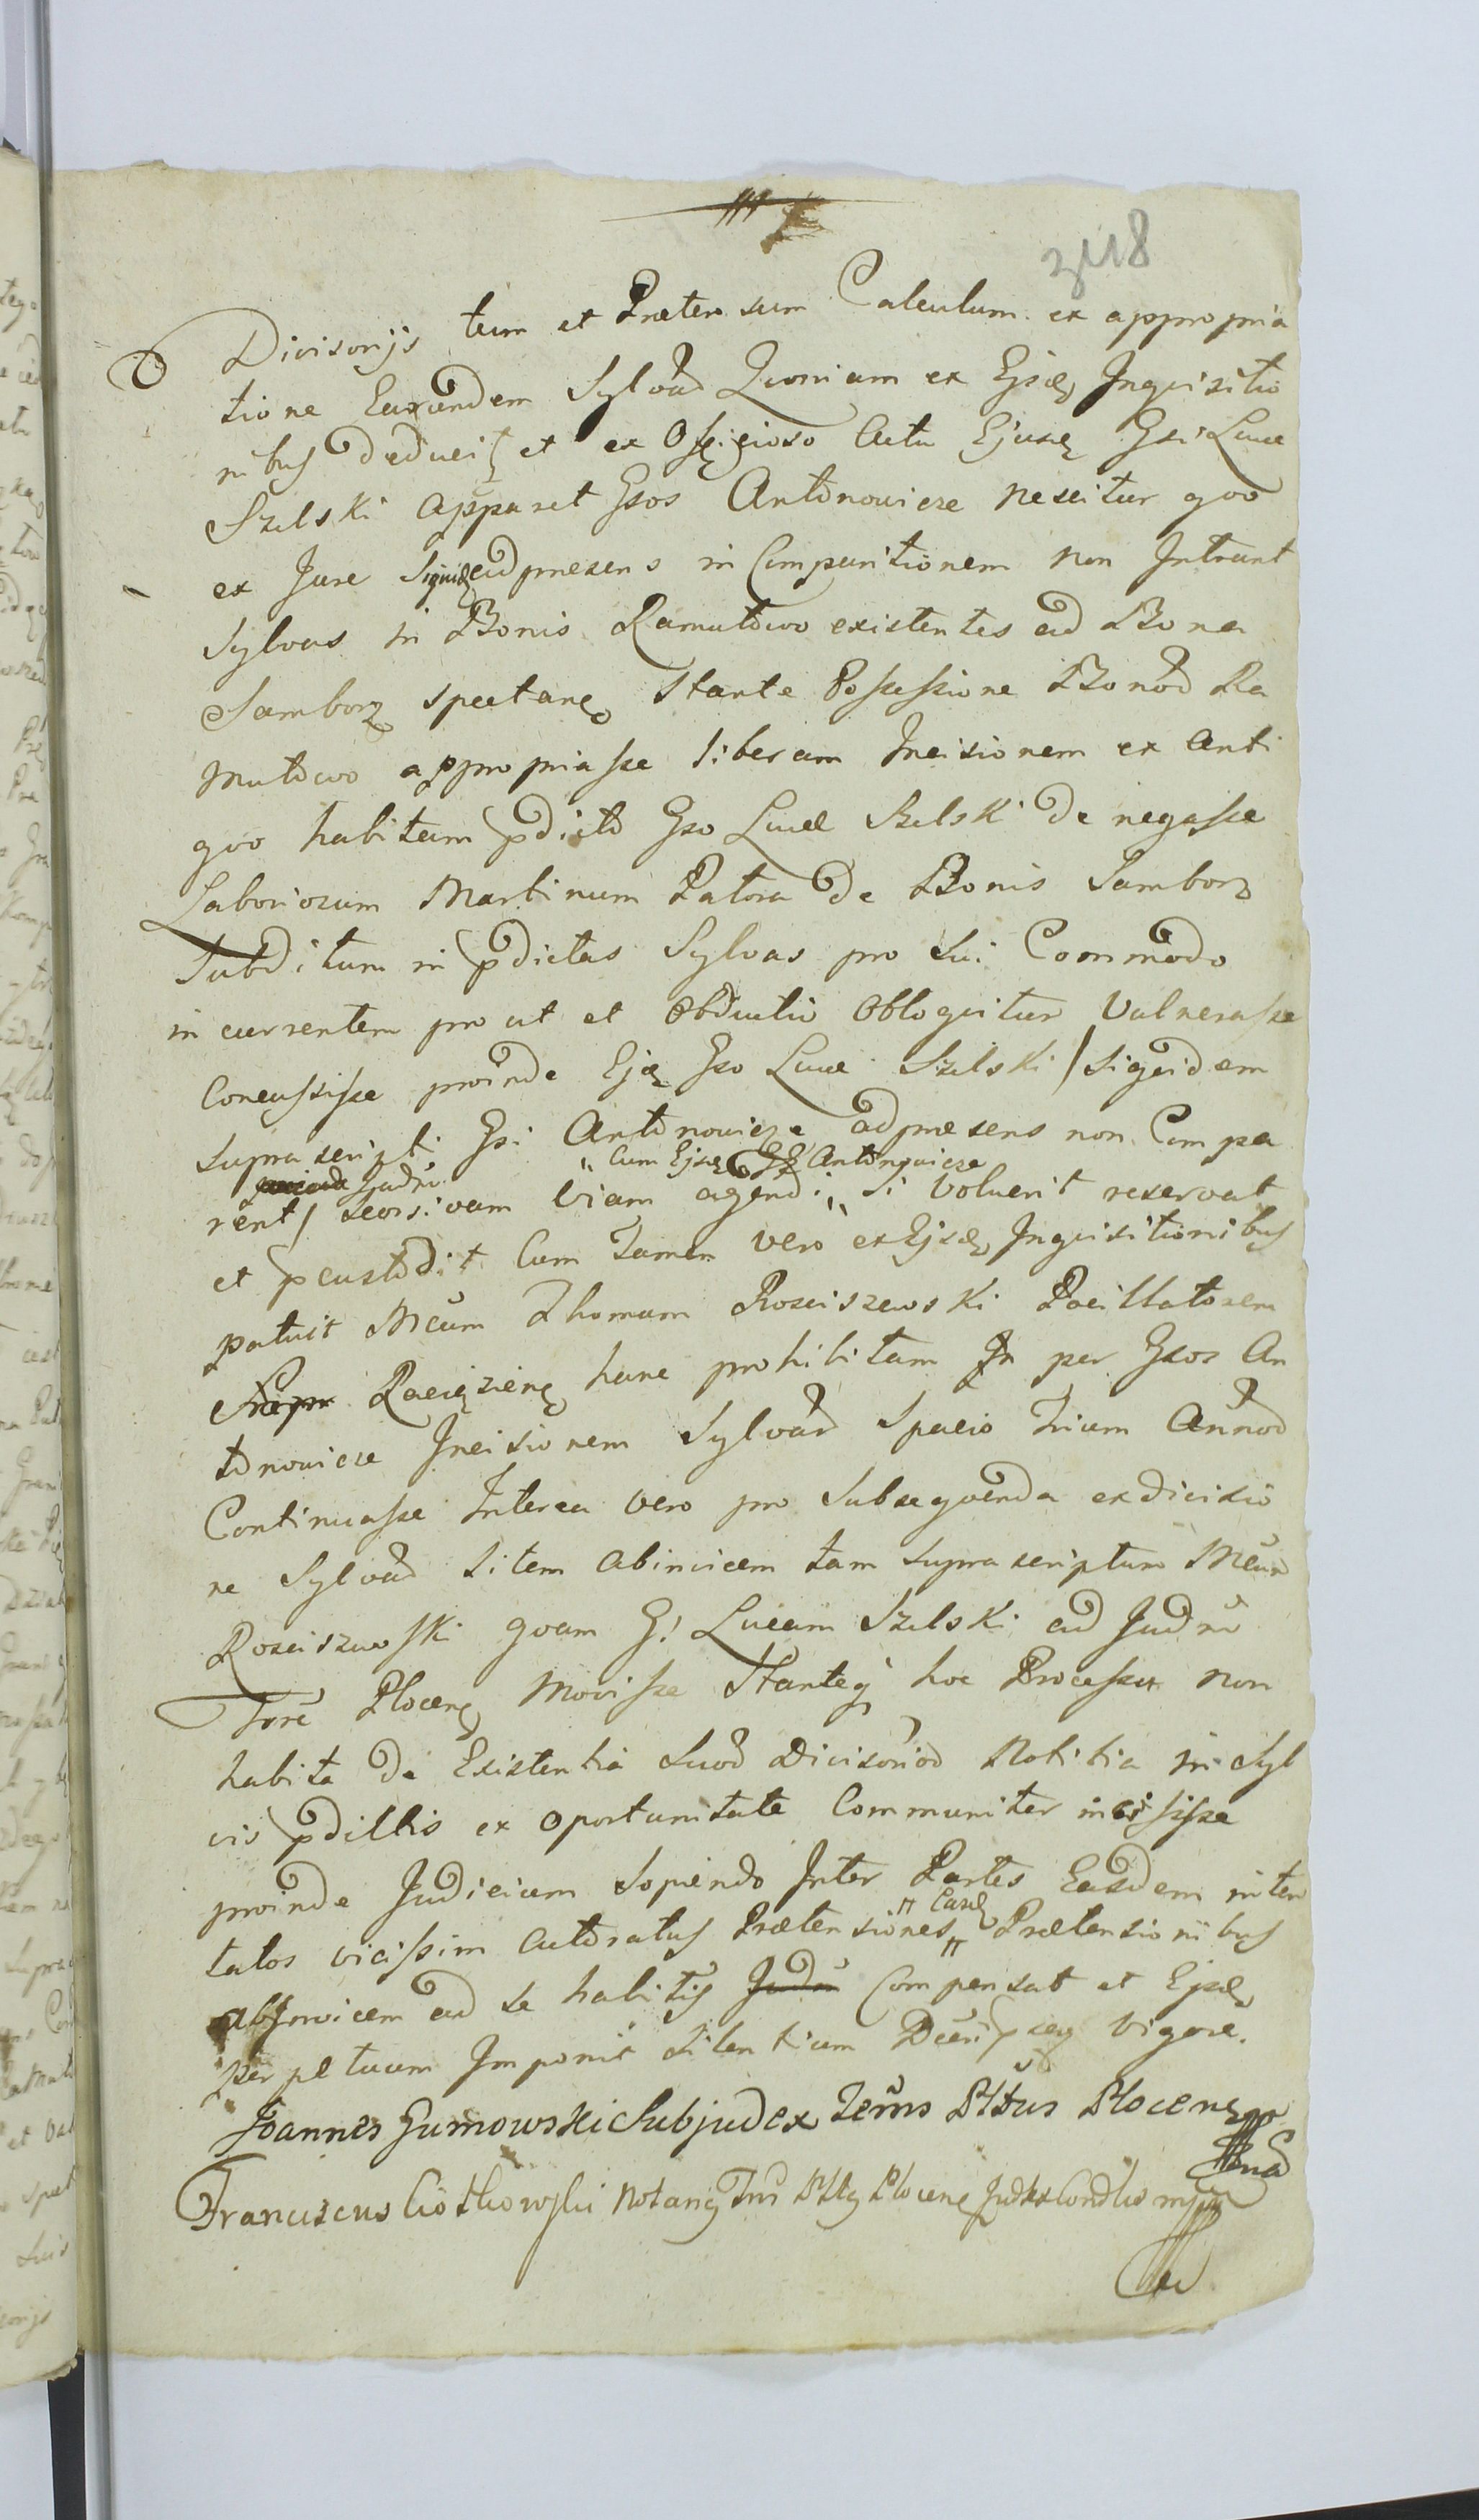 3118
Divisorijs tum et Prætensum Calculum ex appropria
tione Earundem Sylvar Quoniam ex Ejsd Inquisitio
nibus Deducit et ex Officioso Actu Ejusq Gsi Lucæ
Szelski apparet Gsos Antonowicze nescitur quo
ex Jure Siquid adpræsens in Comparitionem non Intrant
Sylvas in Bonis Ramutowo existentes ad Bona
Samborz spectan stante Possessione Bonor Ra
mutowo appropriasse liberam Incisionem ex Anti
quo habitam pdicto Gso Lucæ Szelski denegasse
Laboriosum Martinum Patora de Bonis Samborz
Subditum in pdictas Sylvas pro sui Commodo
incurrentem prout et Obductio Obloquitur Vulnerasse
Concussisse proinde Ejd Gso Lucæ Szelski / Siquidem
suprascripti Gsi Antonowicze adpræsens non Compa
Judm " Cum Ejsd GG Antonowicze
rent / seorsivam Viam agendi " si Voluerit reservat
et pcustodit Cum Tamen Vero ex Ejsd Inquisitionibus
patuit Mcum Thomam Rosciszewski Pocillatorem
Raciązien hanc prohibitam per Gsos An
tonowicze Incisionem Sylvar Spacio Trium Annor
Continuasse Interea Vero pro Subsequenda ex divisio
ne Sylvar Litem abinvicem tam suprascriptum Mcum
Rosciszewski quam G: Lucam Szelski ad Judm
Tore Plocen Movisse Stanteq hoc Processu non
habita de Existentia Suor Divisorior Notitia in Syl
vis pdictis ex oportunitate Communiter incisisse
proinde Judicium Sopiendo Inter Partes Easdem inten
" Easd
tatos vicissim Actoratus Prætensiones " Prætensionibus
abinvicem ad se habitis Judm Compensat et Ejsd
perpetuum Imponit Silentium Decri sui Vigore.
Joannes Gumowski Subjudex Terris Pltus Plocens mp
Franciscus Ciothowski Notariq Tris Pltq Plocens Judex Condlis mp